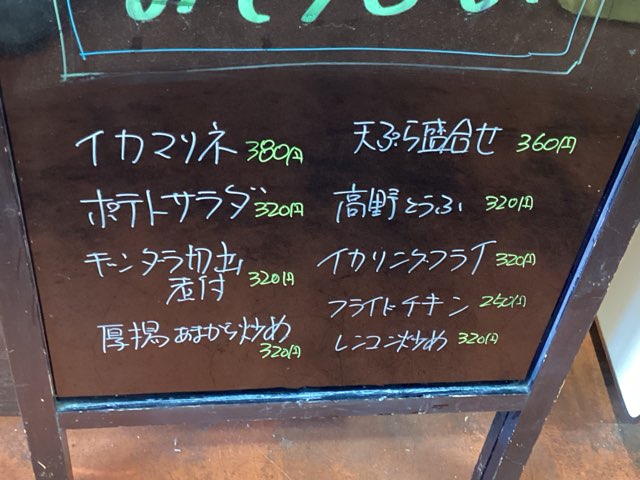 イカマリネ 380円
ポテトサラダ 320円
ギンダラ切出
煮付 320円
厚揚あまから炒め
320円
天ぷら盛合せ 360円
高野とうふ 320円
イカリングフライ 320円
フライドチキン 250円
レンコン炒め 320円